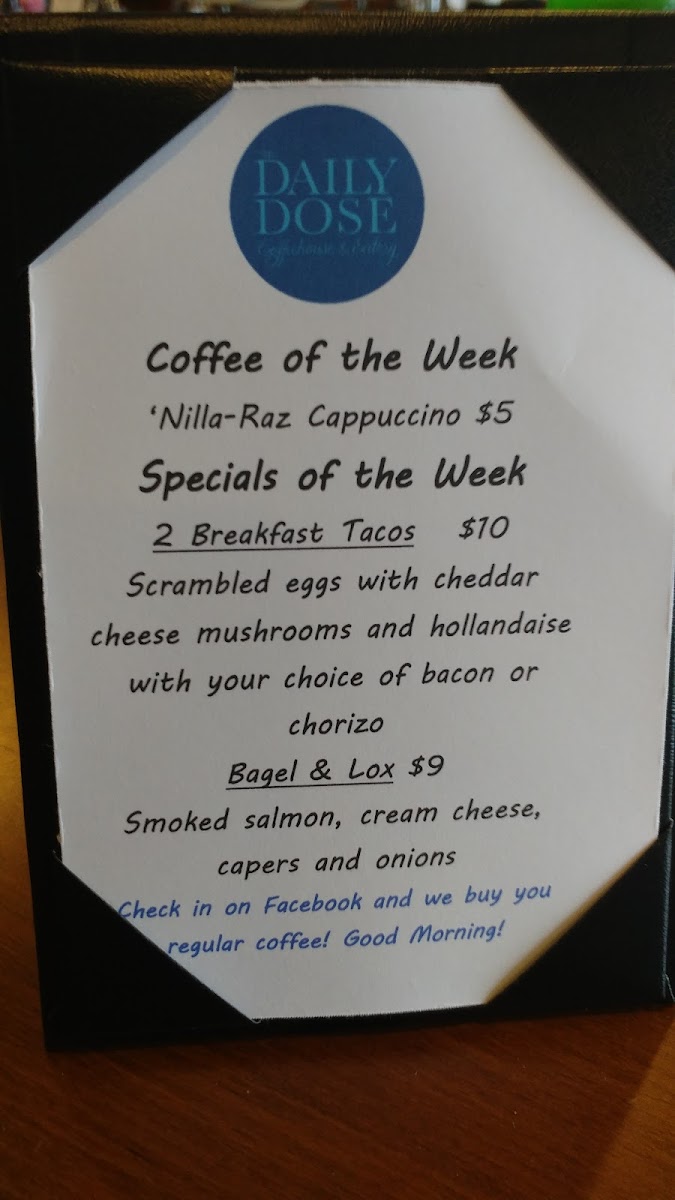 DAILY
DOSE
Coffeehouse & Eatery
Coffee of the Week
‘Nilla-Raz Cappuccino $5
Specials of the Week
2 Breakfast Tacos $10
Scrambled eggs with cheddar
cheese mushrooms and hollandaise
with your choice of bacon or
chorizo
Bagel & Lox $9
Smoked salmon, cream cheese,
capers and onions
Check in on Facebook and we buy you
regular coffee! Good Morning!